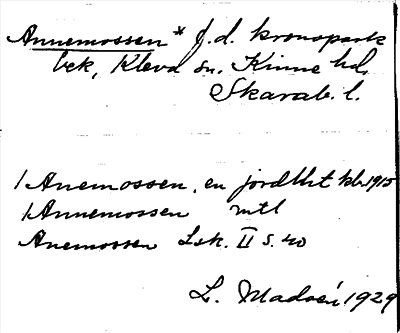 Annemossen* f.d. kronopark
bek, Kleva sn. Kinne hd,
Skarab. l.
1 Anemossen, en jordlht kbr 1915
1 Annemossen mtl
Anemossen Lsk. II s. 40
L. Madsén, 1929